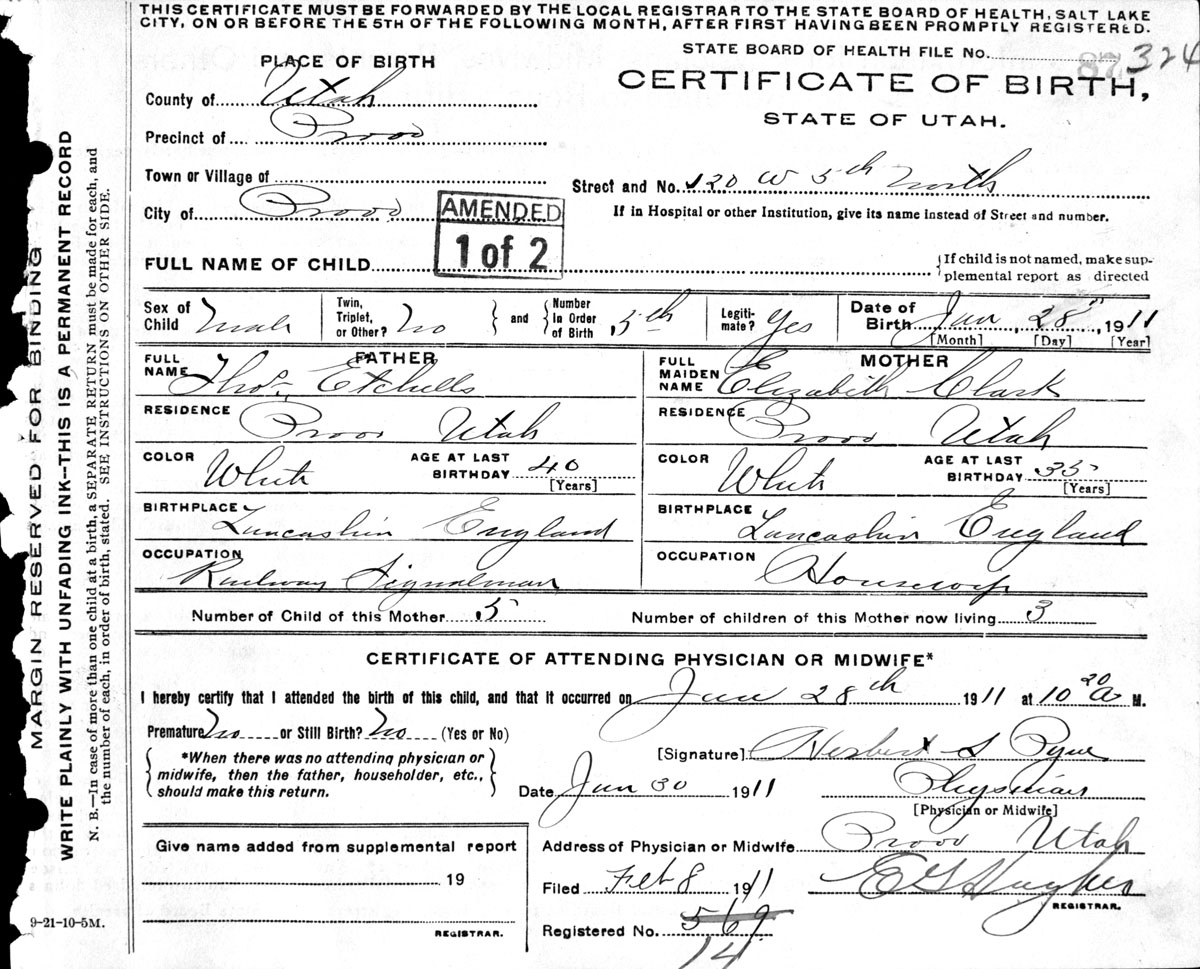 THIS CERTIFICATE MUST BE FORWARDED BY THE LOCAL REGISTRAR TO THE STATE BOARD OF HEALTH, SALT LAKE
CITY, ON OR BEFORE THE 5TH OF THE FOLLOWING MONTH, AFTER FIRST HAVING BEEN PROMPTLY REGISTERED.
STATE BOARD OF HEALTH FILE No. 324
PLACE OF BIRTH
CERTIFICATE OF BIRTH,
STATE OF UTAH.
County of Utah
Precinct of Provo
Town or Village of
Street and No. 120 W 5th North
City of Provo
If in Hospital or other Institution, give its name instead of Street and number.
AMENDED
1 of 2
FULL NAME OF CHILD
If child is not named, make sup-
plemental report as directed
Sex of Child Male
Twin, Triplet, or Other? No
and
Number In Order of Birth 5th
Legiti-mate? Yes
Date of Birth Jan 28 1911
[Month] [Day] [Year]
FATHER
FULL NAME Thos. Etchells
RESIDENCE Provo Utah
COLOR White
AGE AT LAST BIRTHDAY 40
[Years]
BIRTHPLACE Lancashire England
OCCUPATION Railway Signalman
MOTHER
FULL MAIDEN NAME Elizabeth Clark
RESIDENCE Provo Utah
COLOR White
AGE AT LAST BIRTHDAY 35
[Years]
BIRTHPLACE Lancashire England
OCCUPATION Housewife
Number of Child of this Mother 5
Number of children of this Mother now living 3
CERTIFICATE OF ATTENDING PHYSICIAN OR MIDWIFE*
I hereby certify that I attended the birth of this child, and that it occurred on Jan 28th 1911 at 10 20 A M.
Premature No or Still Birth? No (Yes or No)
*When there was no attending physician or
midwife, then the father, householder, etc.,
should make this return.
[Signature] Herbert S Pyne
Date Jan 30 1911
Physician
[Physician or Midwife]
Give name added from supplemental report
19
REGISTRAR.
Address of Physician or Midwife Provo Utah
Filed Feb 8 1911
E G Hughes
REGISTRAR.
Registered No. 569
14
9-21-10-5M.
MARGIN RESERVED FOR BINDING
WRITE PLAINLY WITH UNFADING INK--THIS IS A PERMANENT RECORD
N. B.—In case of more than one child at a birth, a SEPARATE RETURN must be made for each, and
the number of each, in order of birth, stated. SEE INSTRUCTIONS ON OTHER SIDE.